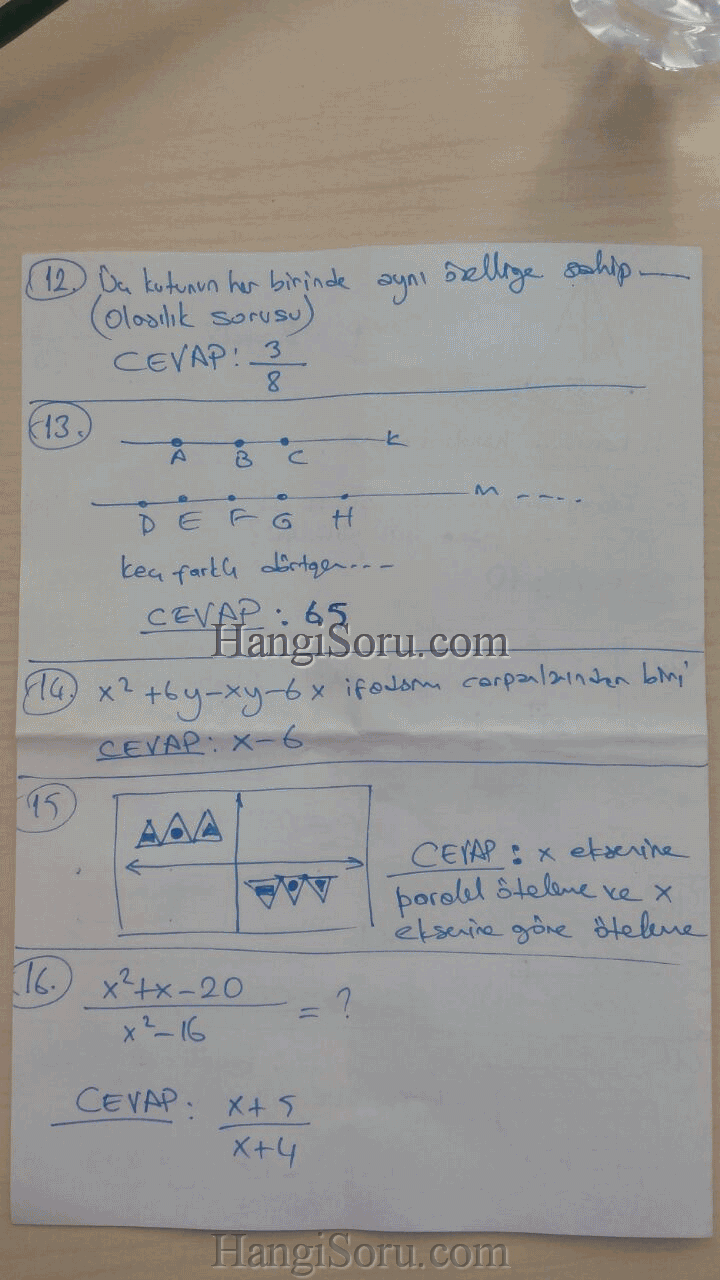 12. Üç kutunun her birinde aynı özelliğe sahip
(Olasılık sorusu)
CEVAP: 3/8
13.
A B C K
D E F G H M ----
kaç farklı dörtgen---
CEVAP: 65
HangiSoru.com
14. x²+6y-xy-6x ifadesinin çarpanlarından biri
CEVAP: x-6
15
CEVAP: x eksenine
paralel öteleme ve x
eksenine göre öteleme
16. x²+x-20 / x²-16 = ?
CEVAP: x+5 / x+4
HangiSoru.com